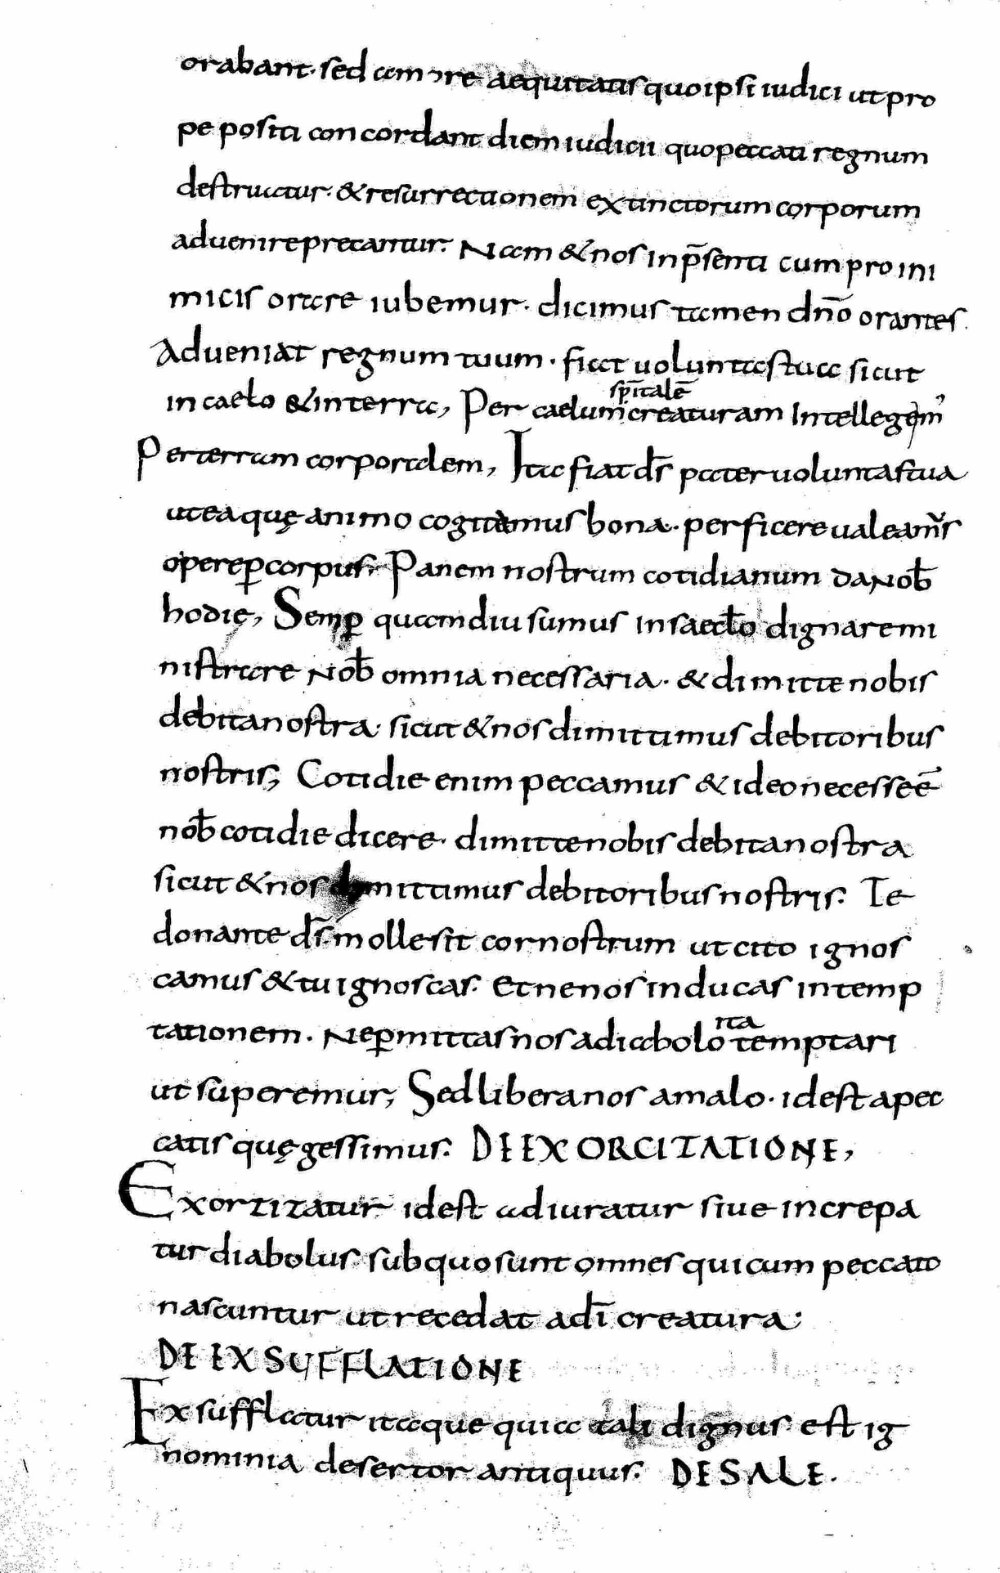 orabant. sed amore aequitatis quo ipsi iudici ut pro
pe positi concordant diem iudicii quo peccati regnum
destruatur. & resurrectionem extinctorum corporum
aduenire precantur. Nam & nos in p̄senti cum pro ini
micis orare iubemur. dicimus tamen dn̄o orantes.
Adueniat regnum tuum. fiat uoluntas tua sicut
in caelo & in terra, Per caelum sp̄italē creaturam Intellegem̉
Per terram corporalem, Ita fiat d̄s pater uoluntas tua
ut ea quę animo cogitamus bona. perficere ualeamus
opere ꝑ corpus. Panem nostrum cotidianum da noƀ
hodię, Semꝑ quamdiu sumus in saeclo dignare mi
nistrare noƀ omnia necessaria. & dimitte nobis
debita nostra. sicut & nos dimittimus debitoribus
nostris; Cotidie enim peccamus & ideo necesse ē
noƀ cotidie dicere. dimitte nobis debita nostra
sicut & nos dimittimus debitoribus nostris. Te
donante d̄s. molle sit cor nostrum ut cito ignos
camus & tu ignoscas. Et ne nos inducas in temp
tationem. Ne ꝑmittas nos a diabolo ita temptari
ut superemur; Sed libera nos a malo. id est a pec
catis quę gessimus. DE EXORCITATIONE,
Exorcitatur id est adiuratur siue increpa
tur diabolus. sub quo sunt omnes qui cum peccato
nascuntur ut recedat a dī creatura.
DE EXSUFFLATIONE
Exsufflatur itaque quia tali dignus est ig
nominia desertor antiquus. DE SALE.